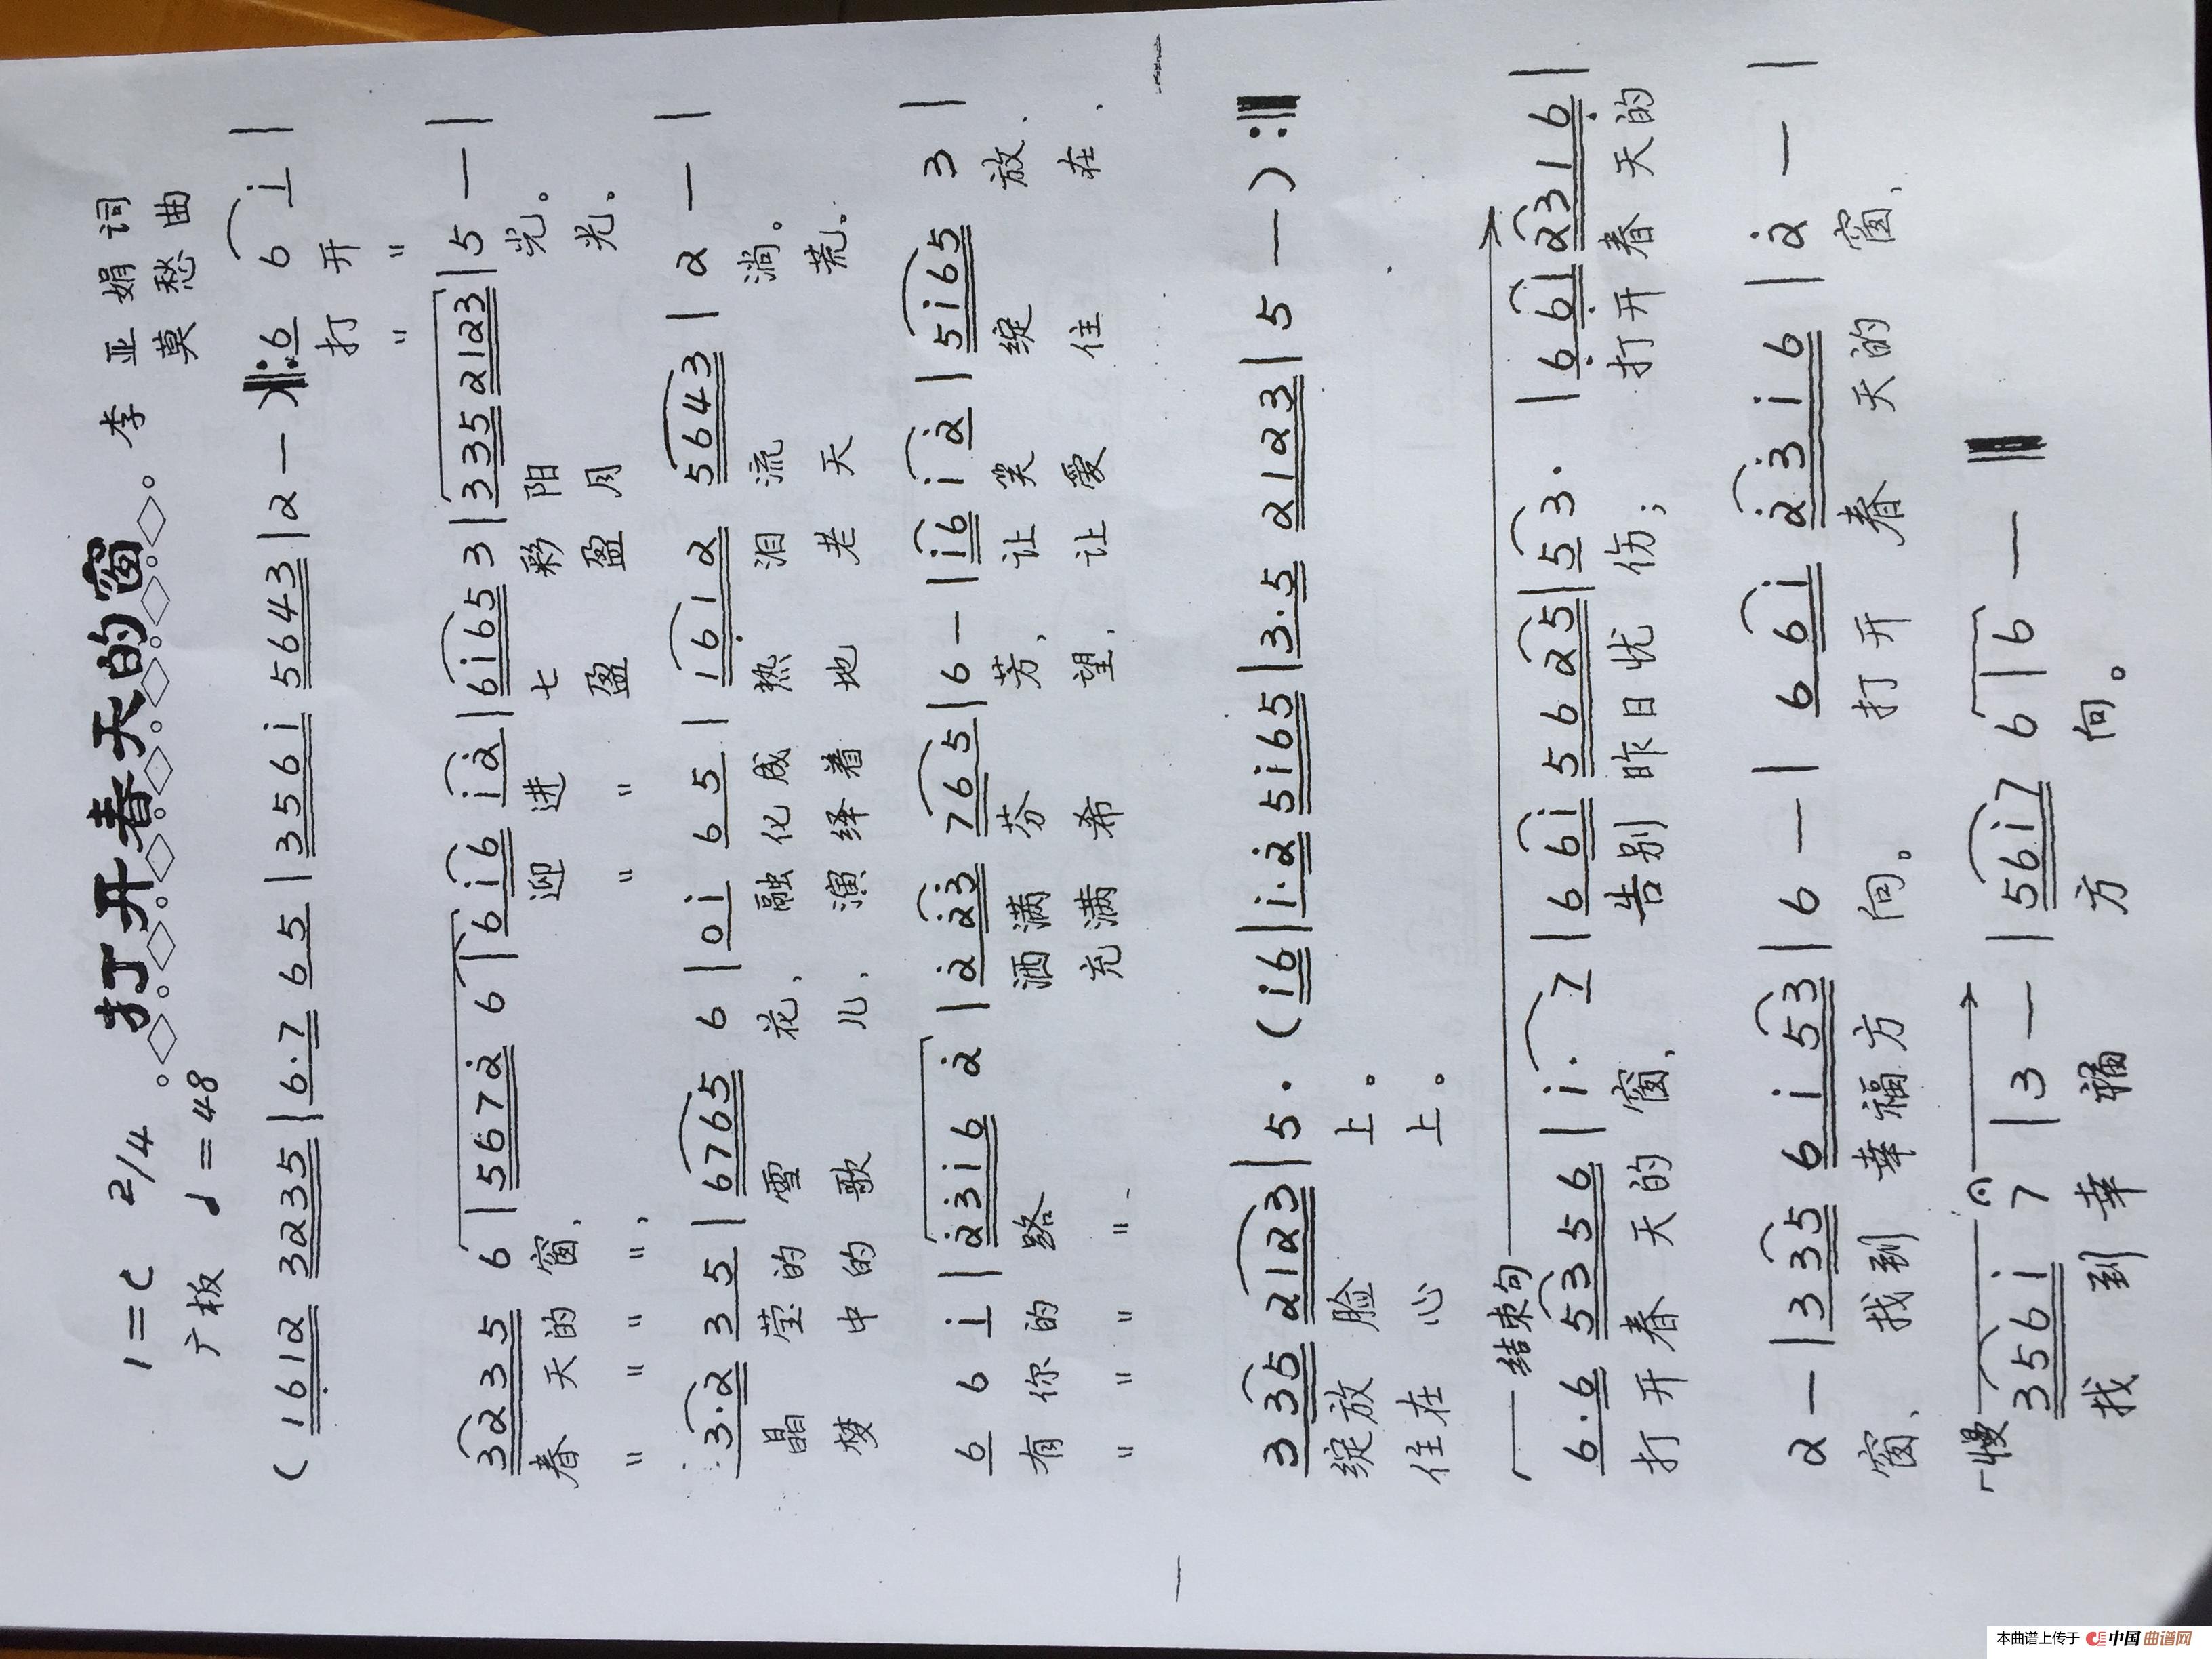 打开春天的窗
1=C 2/4
广板 ♩=48
李亚娟 词
莫愁 曲
( 1612 3235 | 6·7 65 | 356i 5643 | 2 — ) ‖: 6 6 i |
打 开
〃 〃
3235 6 | 5672 6 | 6 i6 i2 | 6i65 3 | 335 2123 | 5 — |
春 天 的 窗， 迎 进 七 彩 阳 光。
〃 〃 〃 〃， 〃 〃 盈 盈 月 光。
3·2 3 5 | 6765 6 | 0 i 6 5 | 161 2 5643 | 2 — |
晶 莹 的 雪 花， 融 化 成 热 泪 流 淌。
梦 中 的 歌 儿， 演 绎 着 地 老 天 荒。
6 6 i | 23i6 2 | 2 23 765 | 6 — | i6 i 2 | 5i65 3 |
有 你 的 路 洒 满 芬 芳， 让 笑 绽 放、
〃 〃 〃 〃 充 满 希 望， 让 爱 住 在、
3 35 2123 | 5 · ( i6 | i·2 5i65 | 3·5 2123 | 5 — ) :‖
绽 放 脸 上。
住 在 心 上。
结束句
6·6 5356 | i · 7 | 6 6i 5625 | 5 3 · | 6 61 2316 |
打 开 春 天 的 窗， 告 别 昨 日 忧 伤； 打 开 春 天 的
2 — | 335 6 i 53 | 6 — | 6 6i 23i6 | 2 — |
窗、 找 到 幸 福 方 向。 打 开 春 天 的 窗、
慢
356i 7 | 3 — | 56i7 6 | 6 — ‖
找 到 幸 福 方 向。
本曲谱上传于 中国曲谱网